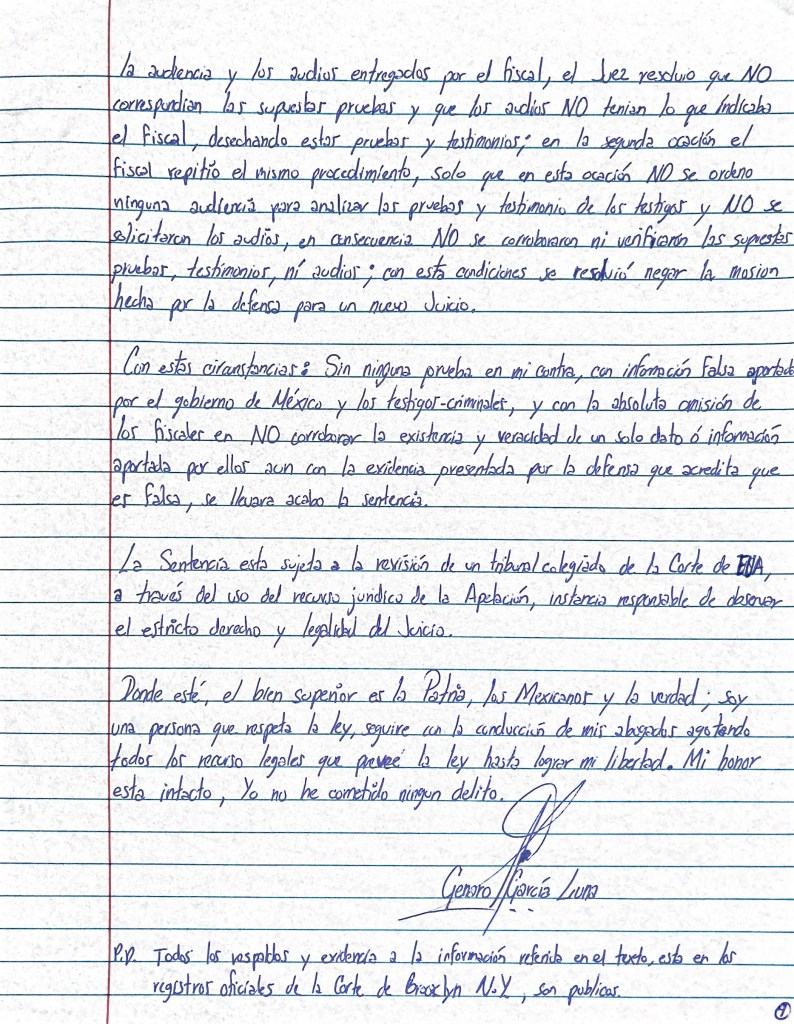 la audiencia y los audios entregados por el fiscal, el Juez resolvio que NO
correspondian las supuestas pruebas y que los audios NO tenian lo que indicaba
el fiscal, desechando estas pruebas y testimonios; en la segunda ocación el
fiscal repitio el mismo procedimiento, solo que en esta ocación NO se ordeno
ninguna audiencia para analizar las pruebas y testimonio de los testigos y NO se
solicitaron los audios, en consecuencia NO se corroboraron ni verificaron las supuestas
pruebas, testimonios, ni audios; con esta condiciones se resolvió negar la mosion
hecha por la defensa para un nuevo Juicio.
Con estas circunstancias: Sin ninguna prueba en mi contra, con información falsa aportada
por el gobierno de México y los testigos-criminales, y con la absoluta omisión de
los fiscales en NO corroborar la existencia y veracidad de un solo dato ó información
aportada por ellos aun con la evidencia presentada por la defensa que acredita que
es falsa, se llevara acabo la sentencia.
La Sentencia esta sujeta a la revisión de un tribunal colegiado de la Corte de EUA,
a través del uso del recurso juridico de la Apelación, instancia responsable de observar
el estricto derecho y legalidad del Juicio.
Donde esté, el bien superior es la Patria, los Mexicanos y la verdad; soy
una persona que respeta la ley, seguire con la conducción de mis abogados agotando
todos los recurso legales que preveé la ley hasta lograr mi libertad. Mi honor
esta intacto, Yo no he cometido ningun delito.
Genaro García Luna
P.D. Todos los respaldos y evidencia a la información referida en el texto, esta en los
registros oficiales de la Corte de Brooclyn N.Y, son publicas.